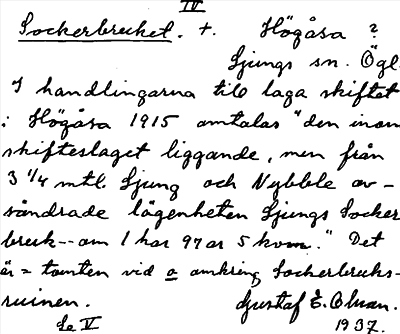 IV
Sockerbruket. +. Högåsa ?
Ljungs sn. Ögl.
I handlingarna till laga skiftet
i Högåsa 1915 omtalas "den inom
skifteslaget liggande, men från
3 1/4 mtl. Ljung och Nybble av-
söndrade lägenheten Ljungs Socker
bruk -- om 1 har 97 ar 5 kvm." Det
är = tomten vid o omkring Sockerbruks-
ruinen. Gustaf E. Olsson.
Se V 1937.